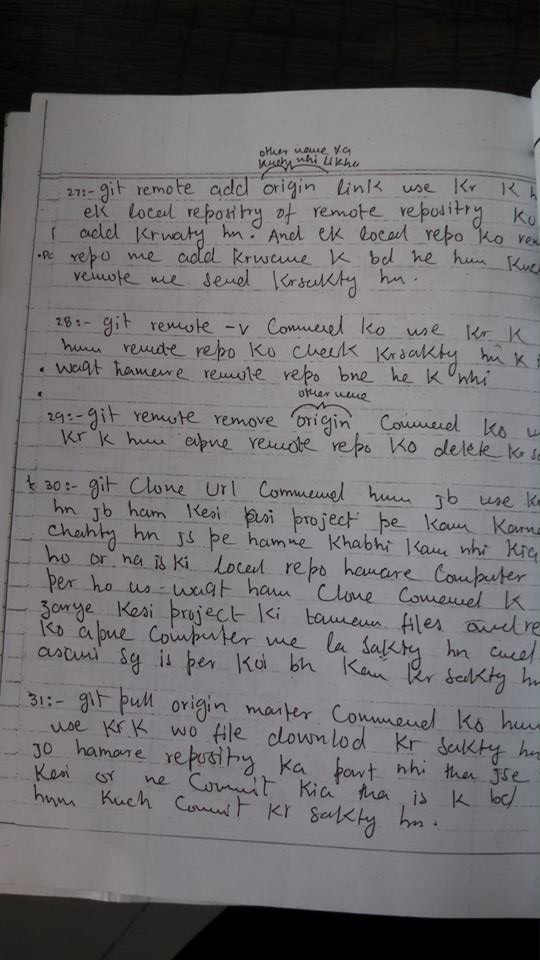 other name ya
kuch nhi likha
27:- git remote add origin link use Kr K h
ek local repositry of remote repositry Ko
add Krwaty hn. And ek local repo Ko rem
repo me add Krwane K bd he hum Kuch
remote me send Krsakty hn.
28:- git remote -v Commend ko use Kr K
hum remote repo Ko check Krsakty hn K i
waqt hamare remote repo bne he K nhi
other name
29:- git remote remove origin Commend Ko u
Kr K hum apne remote repo Ko delete Kr sa
30:- git Clone Url Commend hum jb use Kr
hn jb ham Kesi project pe Kam Karna
Chahty hn js pe hamne Khabhi Kam nhi Kia
ho or na is ki local repo hamare Computer
per ho us waqt ham Clone Comend K
zarye Kesi project Ki tamam files and re
Ko apne Computer me la sakty hn and
asani sy is per Koi bh Kam Kr sakty hn
31:- git pull origin master Commend Ko hum
use Kr K wo file downlod Kr sakty hn
Jo hamare repositry Ka part nhi tha jse
Kesi or ne Commit Kia tha is K bd
hum Kuch Comit Kr sakty hn.